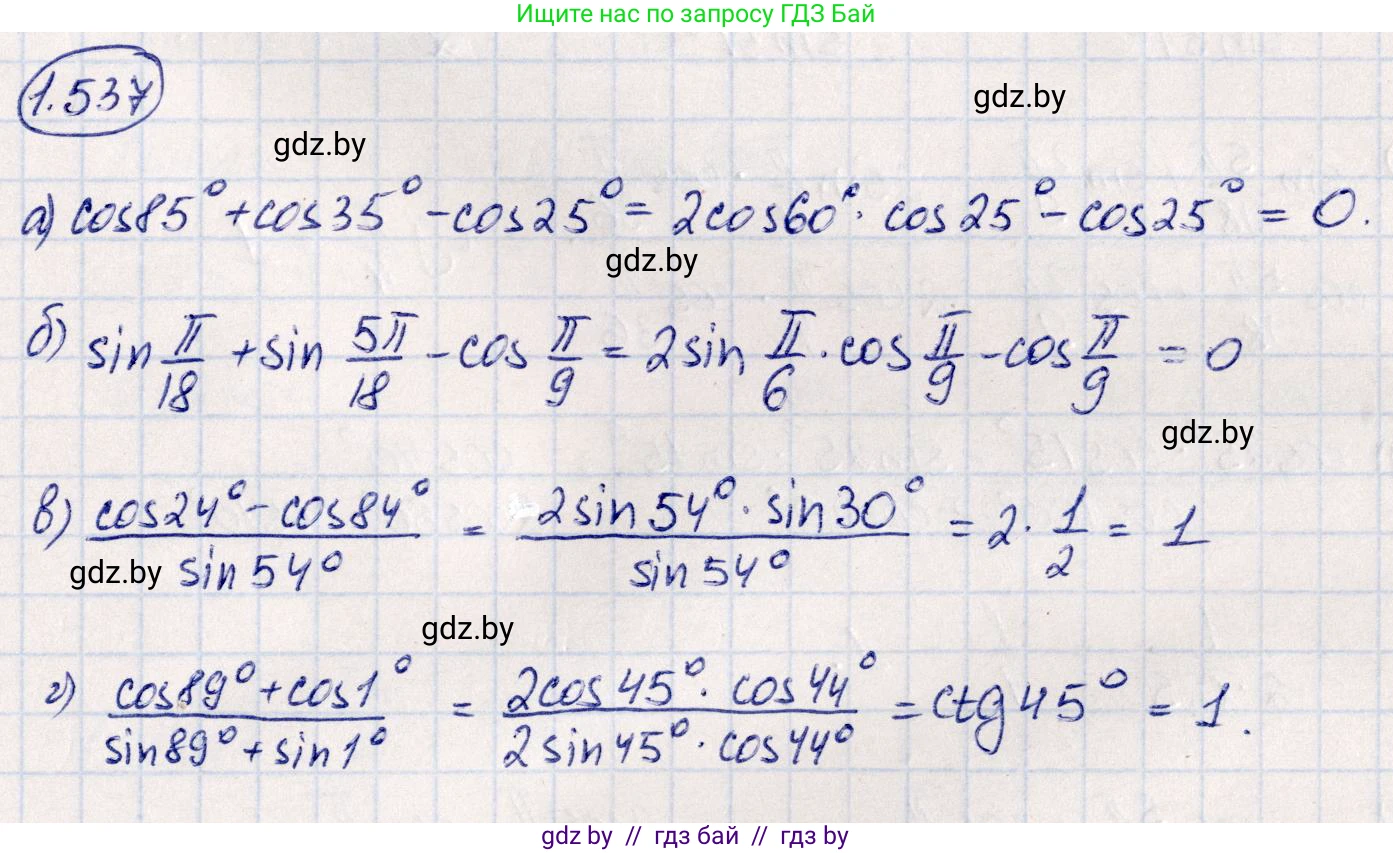 Ищите нас по запросу ГДЗ Бай
1.537
gdz.by
gdz.by
а) cos85° + cos35° - cos25° = 2cos60° · cos25° - cos25° = 0.
gdz.by
б) sin π/18 + sin 5π/18 - cos π/9 = 2sin π/6 · cos π/9 - cos π/9 = 0
gdz.by
в) (cos24° - cos84°)/(sin54°) = (2sin54° · sin30°)/(sin54°) = 2 · 1/2 = 1
gdz.by
gdz.by
г) (cos89° + cos1°)/(sin89° + sin1°) = (2cos45° · cos44°)/(2sin45° · cos44°) = ctg45° = 1.
gdz by // гдз бай // гдз by